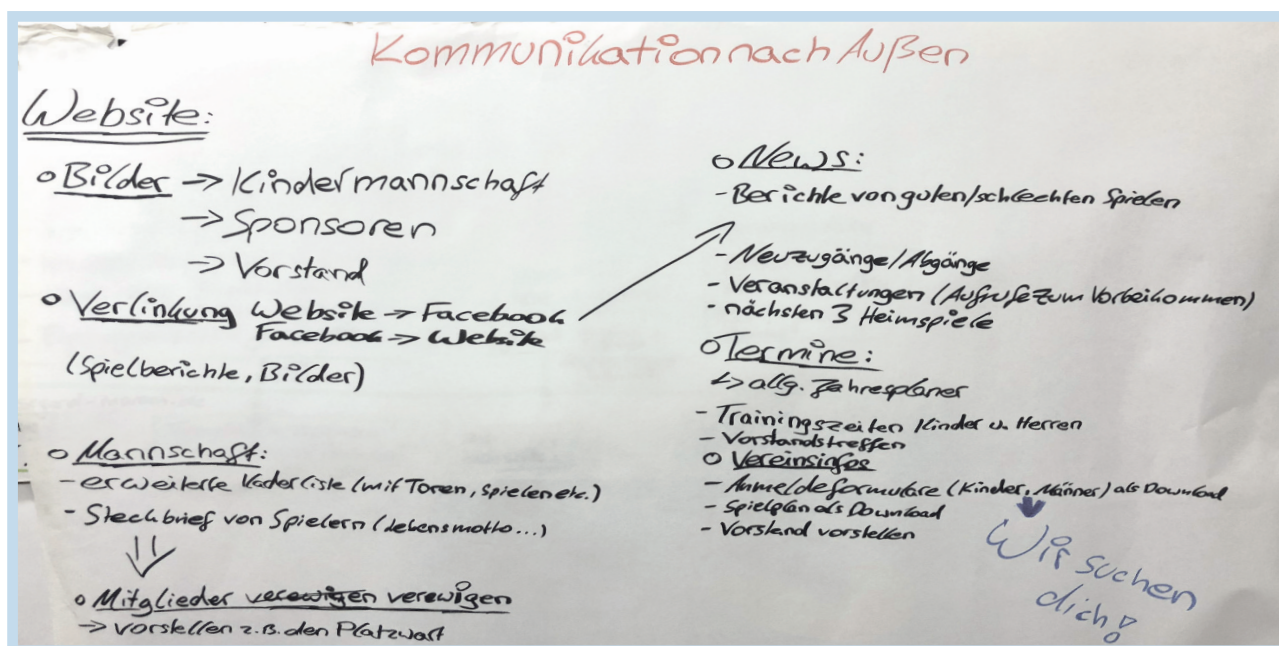 Kommunikation nach Außen
Website:
o Bilder -> Kindermannschaft
-> Sponsoren
-> Vorstand
o Verlinkung Website -> Facebook
Facebook -> Website
(Spielberichte, Bilder)
o Mannschaft:
- erweiterte Kaderliste (mit Toren, Spielen etc.)
- Steckbrief von Spielern (Lebensmotto...)
o Mitglieder verewigen verewigen
-> vorstellen z.B. den Platzwart
o News:
- Berichte von guten/schlechten Spielen
- Neuzugänge/Abgänge
- Veranstaltungen (Aufrufe zum Vorbeikommen)
- nächsten 3 Heimspiele
o Termine:
↳ allg. Jahresplaner
- Trainingszeiten Kinder u. Herren
- Vorstandstreffen
o Vereinsinfos
- Anmeldeformulare (Kinder, Männer) als Download
- Spielplan als Download
- Vorstand vorstellen
Wir suchen
dich!